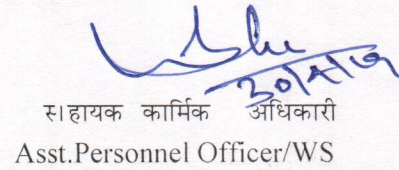 30/4/19
सहायक कार्मिक अधिकारी
Asst.Personnel Officer/WS